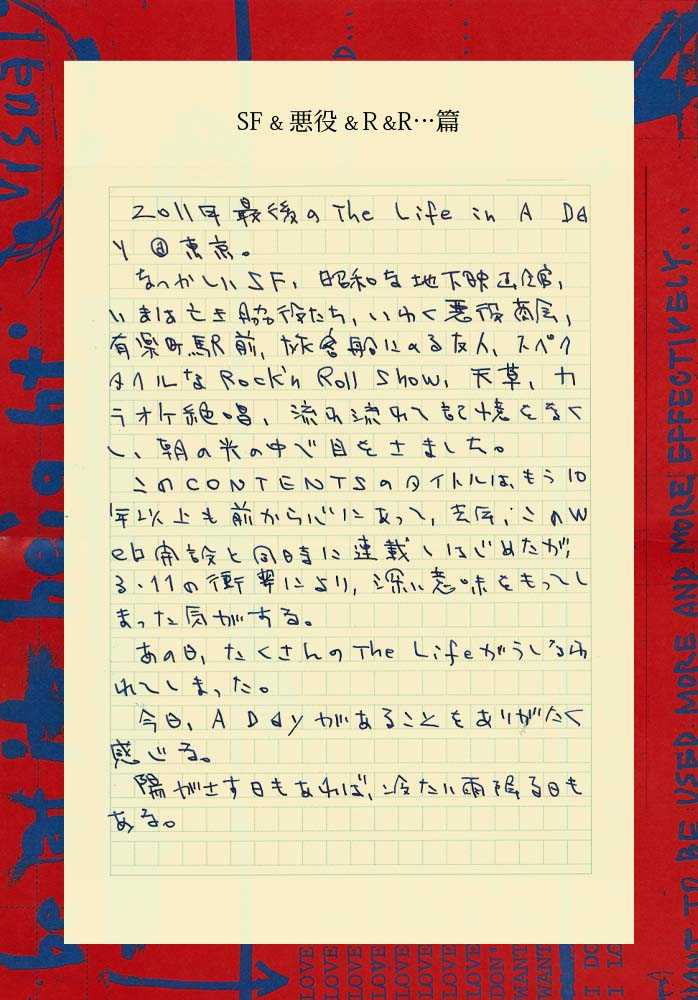 SF & 悪役 & R &R…篇
2011年最後の The Life in A Da
y @ 東京。
なつかしいSF, 昭和な地下映画館,
いまは亡き脇役たち, いわく悪役商会,
有楽町駅前, 旅客船にのる友人, スペク
タクルな Rock'n Roll Show, 天草, カ
ラオケ絶唱, 流れ流れて記憶をなく
し, 朝の光の中で目をさました。
このCONTENTSのタイトルは, もう10
年以上も前から心にあって, 去年, このW
eb開設と同時に連載しはじめたが,
3・11の衝撃により, 深い意味をもってし
まった気がする。
あの日, たくさんの The Life がうしなわ
れてしまった。
今日, A Day があることをありがたく
感じる。
陽がさす日もあれば, 冷たい雨降る日も
ある。
visual
be at it height.
WANT TO BE USED MORE AND MORE EFFECTIVELY...
LOVE
LOVE
LOVE
LOVE
LOVE
WANT
DON'T
WANT
WANT
I DO
I LO